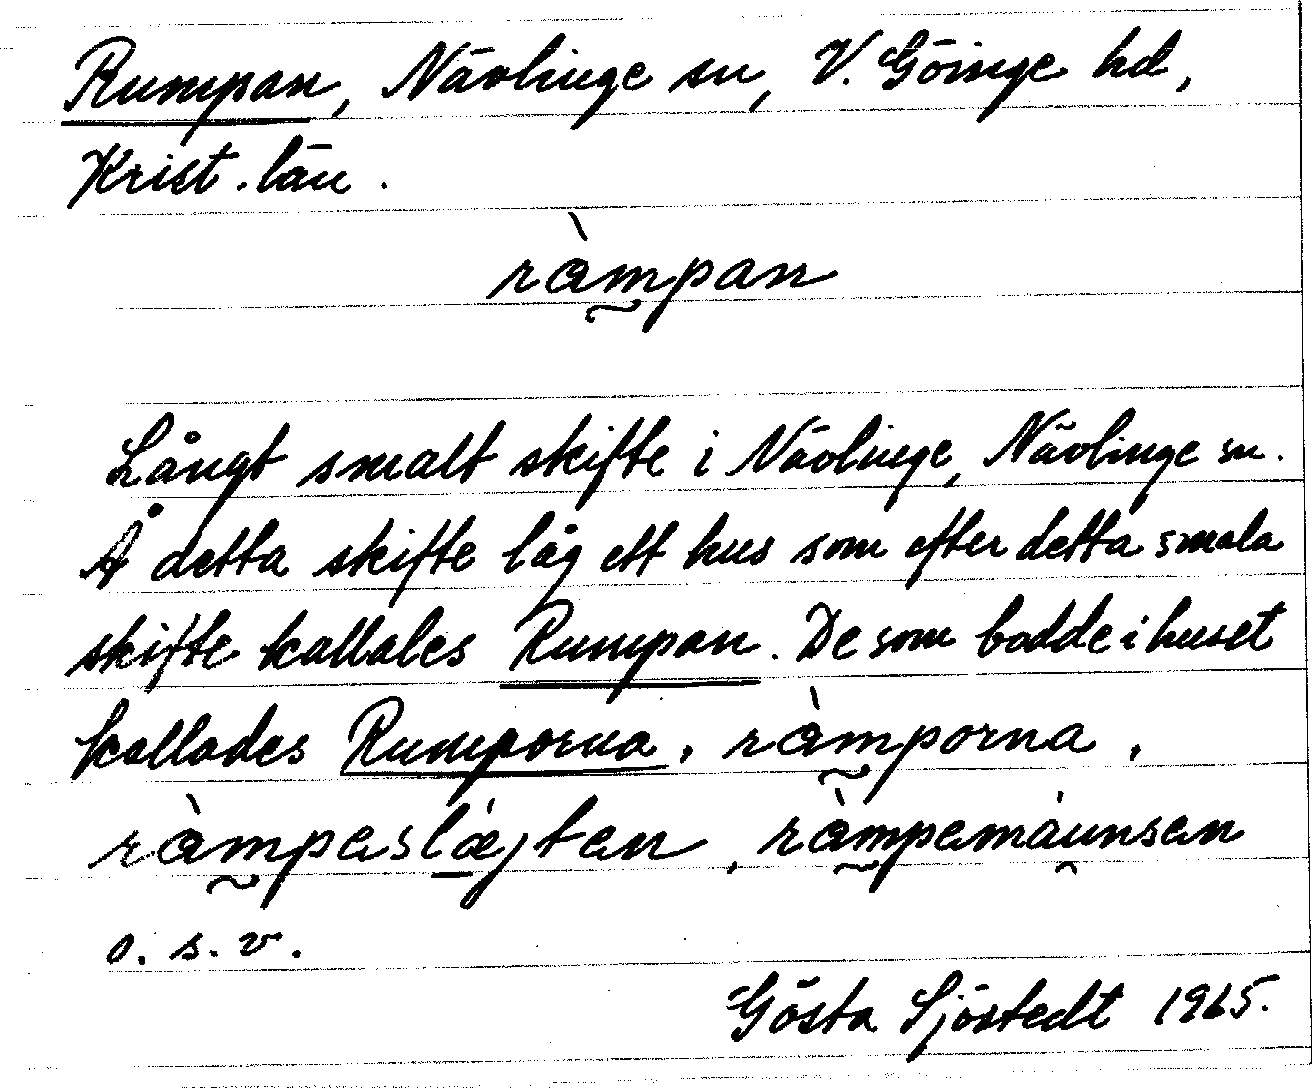 Rumpan, Nävlinge sn, V. Göinge hd,
Krist. län.
ràmpan
Långt smalt skifte i Nävlinge, Nävlinge sn.
Å detta skifte låg ett hus som efter detta smala
skifte kallales Rumpan. De som bodde i huset
kallades Rumporna. ràmporna,
ràmpeslæjten, ràmpemåunsen
o. s. v.
Gösta Sjöstedt 1965.